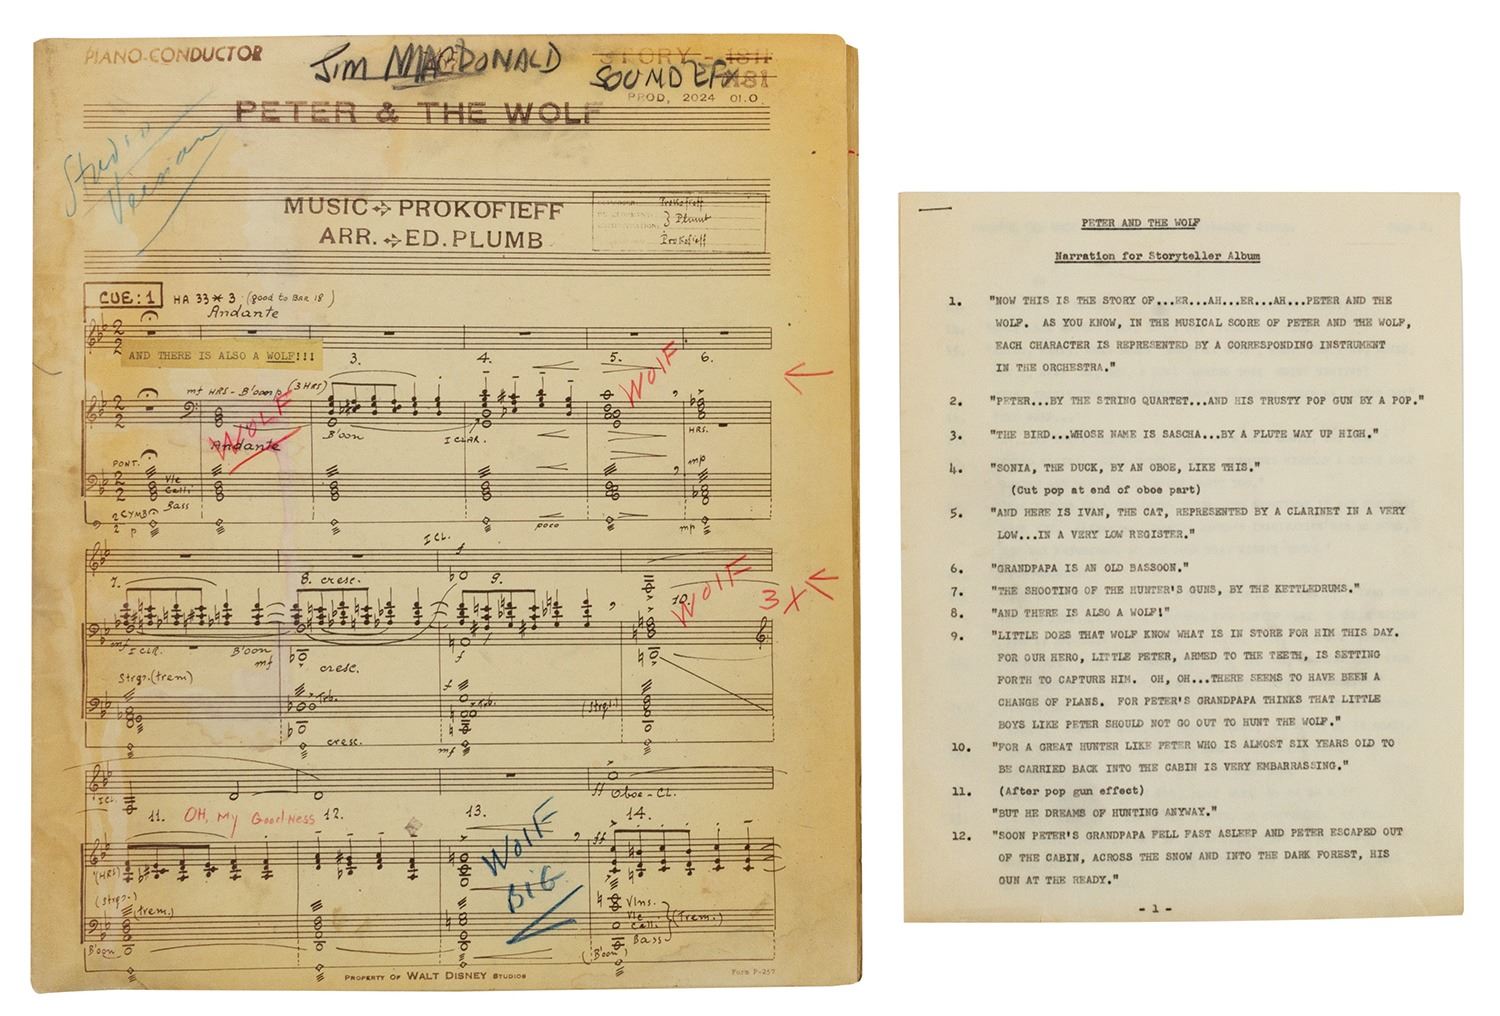 PIANO-CONDUCTOR
Jim MACDONALD
STORY - 1811
SOUND EFX
PROD, 2024 01.0.
PETER & THE WOLF
Studio
Version
MUSIC PROKOFIEFF
ARR. ED. PLUMB
Prokofieff
} Plumb
Prokofieff
CUE: 1 HA 33 * 3. (good to BAR 18)
Andante
AND THERE IS ALSO A WOLF!!!
3. 4. 5. 6.
WOLF
mf HRS - B'oon (3 HRS)
WOLF
B'oon
I CLAR.
HRS.
Andante
PONT.
Vle
Celli
Bass
mp
CYMB
p
poco
mp
I CL.
f
7. 8. cresc. 9. 10.
WOLF
3X
mf I CLR. B'oon
mf
f
cresc.
Strgs. (trem)
Trb.
f
Trb.
(Strgs.)
cresc.
mf
I CL.
ff Oboe-CL.
11. OH, MY GOODNESS 12. 13. 14.
ff
WOLF
BIG
(HRS)
(Strgs.)
(trem.)
Vlns.
Vle
Celli
Bass
(Trem.)
B'oon
(B'oon)
PROPERTY OF WALT DISNEY STUDIOS
Form P-257
PETER AND THE WOLF
Narration for Storyteller Album
1. "NOW THIS IS THE STORY OF...ER...AH...ER...AH...PETER AND THE
WOLF. AS YOU KNOW, IN THE MUSICAL SCORE OF PETER AND THE WOLF,
EACH CHARACTER IS REPRESENTED BY A CORRESPONDING INSTRUMENT
IN THE ORCHESTRA."
2. "PETER...BY THE STRING QUARTET...AND HIS TRUSTY POP GUN BY A POP."
3. "THE BIRD...WHOSE NAME IS SASCHA...BY A FLUTE WAY UP HIGH."
4. "SONIA, THE DUCK, BY AN OBOE, LIKE THIS."
(Cut pop at end of oboe part)
5. "AND HERE IS IVAN, THE CAT, REPRESENTED BY A CLARINET IN A VERY
LOW...IN A VERY LOW REGISTER."
6. "GRANDPAPA IS AN OLD BASSOON."
7. "THE SHOOTING OF THE HUNTER'S GUNS, BY THE KETTLEDRUMS."
8. "AND THERE IS ALSO A WOLF!"
9. "LITTLE DOES THAT WOLF KNOW WHAT IS IN STORE FOR HIM THIS DAY.
FOR OUR HERO, LITTLE PETER, ARMED TO THE TEETH, IS SETTING
FORTH TO CAPTURE HIM. OH, OH...THERE SEEMS TO HAVE BEEN A
CHANGE OF PLANS. FOR PETER'S GRANDPAPA THINKS THAT LITTLE
BOYS LIKE PETER SHOULD NOT GO OUT TO HUNT THE WOLF."
10. "FOR A GREAT HUNTER LIKE PETER WHO IS ALMOST SIX YEARS OLD TO
BE CARRIED BACK INTO THE CABIN IS VERY EMBARRASSING."
11. (After pop gun effect)
"BUT HE DREAMS OF HUNTING ANYWAY."
12. "SOON PETER'S GRANDPAPA FELL FAST ASLEEP AND PETER ESCAPED OUT
OF THE CABIN, ACROSS THE SNOW AND INTO THE DARK FOREST, HIS
GUN AT THE READY."
- 1 -